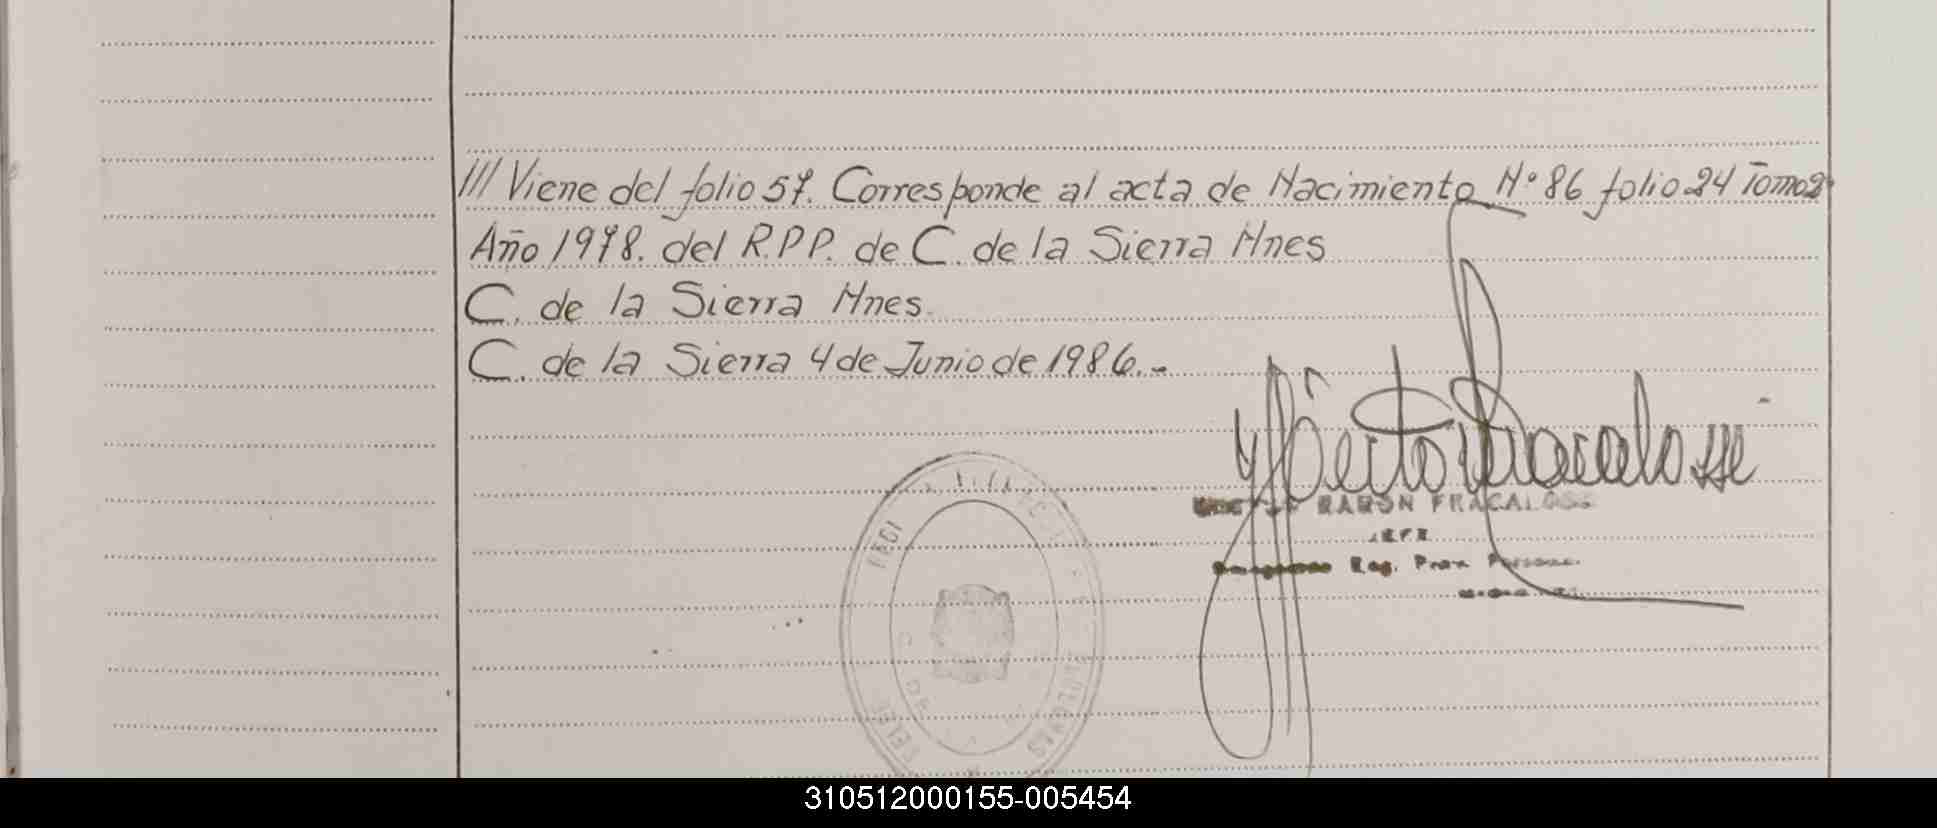 /// Viene del folio 57. Corresponde al acta de Nacimiento Nº 86 folio 24 Tomo 2º
Año 1978. del R.P.P. de C. de la Sierra Mnes
C. de la Sierra Mnes.
C. de la Sierra 4 de Junio de 1986.-
RAMON FRACALOSS
JEFE
Reg. Prov. Personas
310512000155-005454